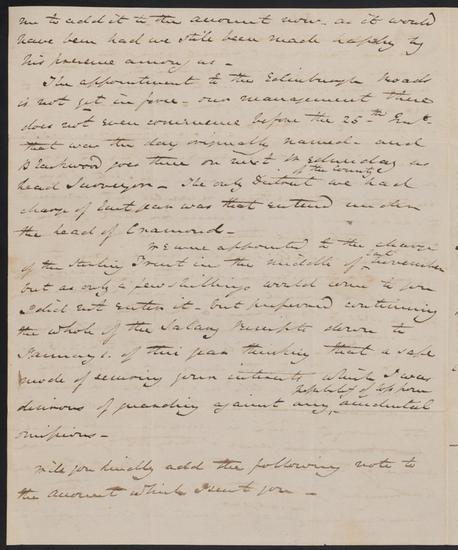 me to add it to the amount now - as it would
have been had we still been made happy by
his presence among us -
The appointment to the Edinburgh roads
is not yet in force - our management there
does not even commence before the 25th
that was the day originally named - and
Blackwood goes there on next Wednesday as
head Surveyor - The only District of the County we had
charge of last year was that entered under
the head of Cramond -
We were appointed to the charge
of the Stirling Trust in the middle of last November
but as only a few shillings would come to you
I did not enter it - but preferred continuing
the whole of the Salary receipts down to
January 1. of this year thinking that a safe
mode of securing your interests which I was
desirous of guarding against any possibility of accidental
omissions -
Will you kindly add the following note to
the amount which I sent you -